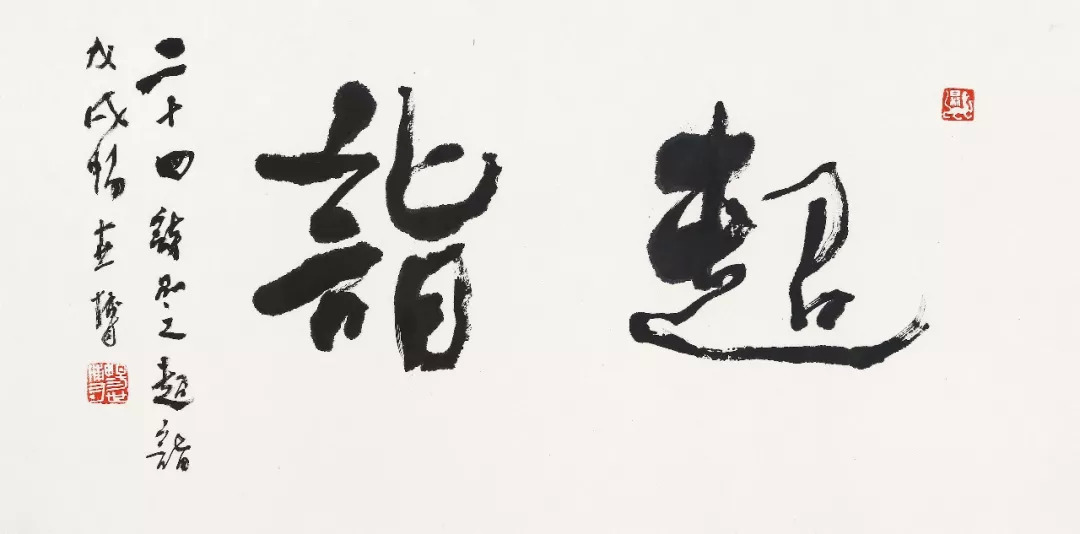 超詣
二十四詩品之超詣
戊戌